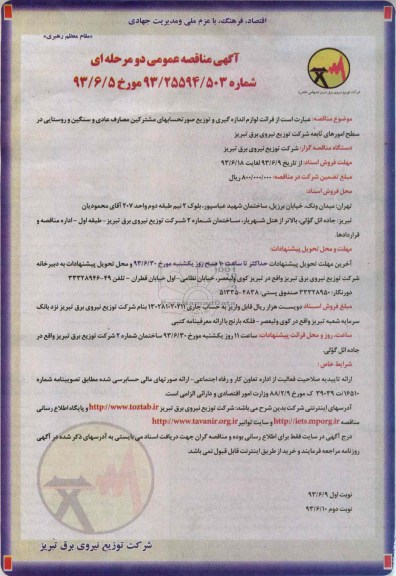 اقتصاد، فرهنگ، با عزم ملی ومدیریت جهادی
«مقام معظم رهبری»
آگهی مناقصه عمومی دو مرحله ای
شماره ۹۳/۲۵۵۹۴/۵۰۳ مورخ ۹۳/۶/۵
موضوع مناقصه: عبارت است از قرائت لوازم اندازه گیری و توزیع صورتحسابهای مشترکین مصارف عادی و سنگین و روستایی در
سطح امورهای تابعه شرکت توزیع نیروی برق تبریز
دستگاه مناقصه گزار: شرکت توزیع نیروی برق تبریز
مهلت فروش اسناد: از تاریخ ۹۳/۶/۹ لغایت ۹۳/۶/۱۸
مبلغ تضمین شرکت در مناقصه: ۸۰۰/۰۰۰/۰۰۰ ریال
محل فروش اسناد:
تهران: میدان ونک، خیابان برزیل، ساختمان شهید عباسپور، بلوک ۲ نیم طبقه دوم واحد ۲۰۷ آقای محمودیان
تبریز: جاده ائل گؤلی، بالاتر از هتل شهریار، ساختمان شماره ۲ شرکت توزیع نیروی برق تبریز - طبقه اول - اداره مناقصه و
قراردادها.
مهلت و محل تحویل پیشنهادات:
آخرین مهلت تحویل پیشنهادات حداکثر تا ساعت ۱۰ صبح روز یکشنبه مورخ ۹۳/۶/۳۰ و محل تحویل پیشنهادات به دبیرخانه
شرکت توزیع نیروی برق تبریز واقع در تبریز کوی ولیعصر، خیابان نظامی - اول خیابان قطران - تلفن ۴۹-۳۳۳۲۸۹۴۶
دورنگار: ۳۳۳۲۸۹۵۰ صندوق پستی: ۴۸۳۸-۵۱۳۳۵
مبلغ فروش اسناد دویست هزار ریال قابل واریز به حساب جاری بنام شرکت توزیع نیروی برق تبریز نزد بانک
سرمایه شعبه تبریز واقع در کوی ولیعصر - فلکه بارنج با ارائه معرفینامه کتبی
ساعت، روز و محل قرائت پیشنهادات: ساعت ۱۱ روز یکشنبه مورخ ۹۳/۶/۳۰ ساختمان شماره ۲ شرکت توزیع برق تبریز واقع در
جاده ائل گؤلی.
شرایط خاص:
ارائه تاییدیه صلاحیت فعالیت از اداره تعاون کار و رفاه اجتماعی - ارائه صورتهای مالی حسابرسی شده مطابق تصویبنامه شماره
مورخ ۸۸/۲/۹ وزارت امور اقتصادی و دارائی الزامی است.
آدرسهای اینترنتی شرکت بدین شرح می باشد: شرکت توزیع نیروی برق تبریز http://www.toztab.ir و پایگاه اطلاع رسانی
مناقصه http://iets.mporg.ir و سایت توانیر http://www.tavanir.org.ir
درج آگهی در سایت فقط برای اطلاع رسانی بوده و مناقصه گران جهت دریافت اسناد می بایستی به آدرسهای ذکر شده در آگهی
روزنامه مراجعه فرمایند و خرید از طریق اینترنت قابل قبول نمی باشد.
نوبت اول ۹۳/۶/۹
نوبت دوم ۹۳/۶/۱۰
شرکت توزیع نیروی برق تبریز